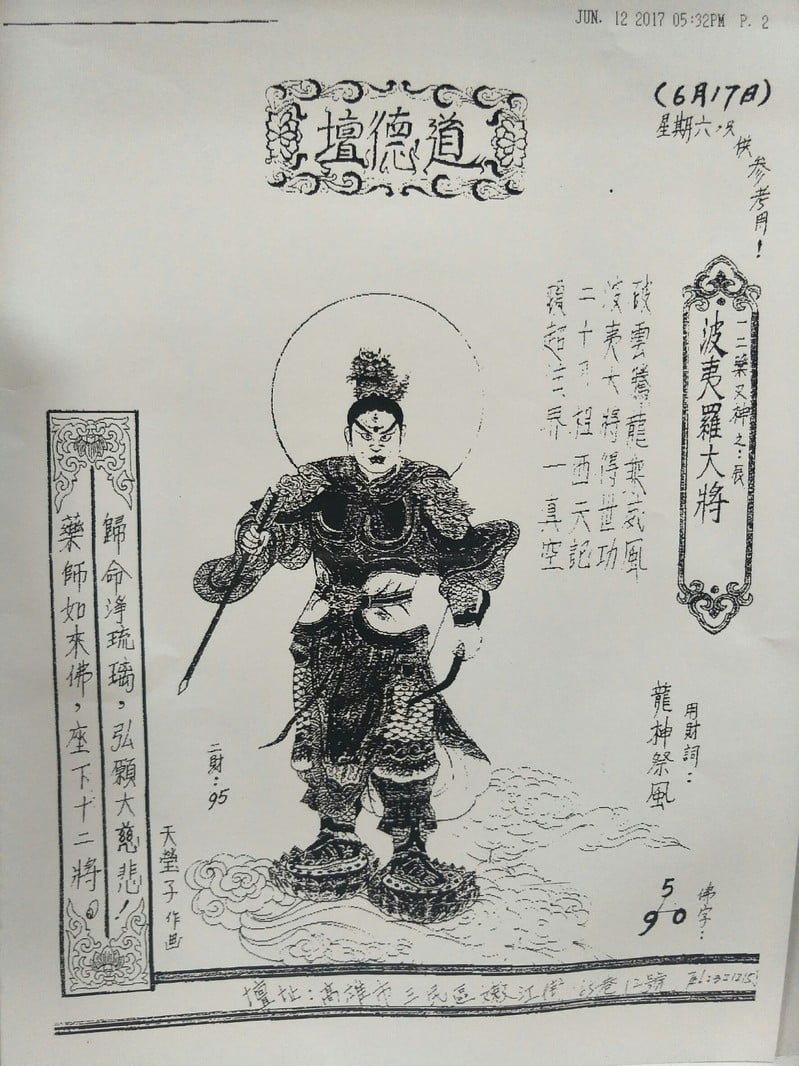 JUN. 12 2017 05:32PM P. 2
道德壇
(6月17日)
星期六.只供参考用!
一二藥叉神之:辰
波夷羅大將
雲龍威風
波夷大將得世功
二十程西天記
超界一真空
用財詞:
龍神祭風
佛字:
5
9 0
二財:95
天瑩子作画
歸命淨琉璃,弘願大慈悲!
藥師如來佛,座下十二將。
壇址:高雄市三民區嫩江街巷12號